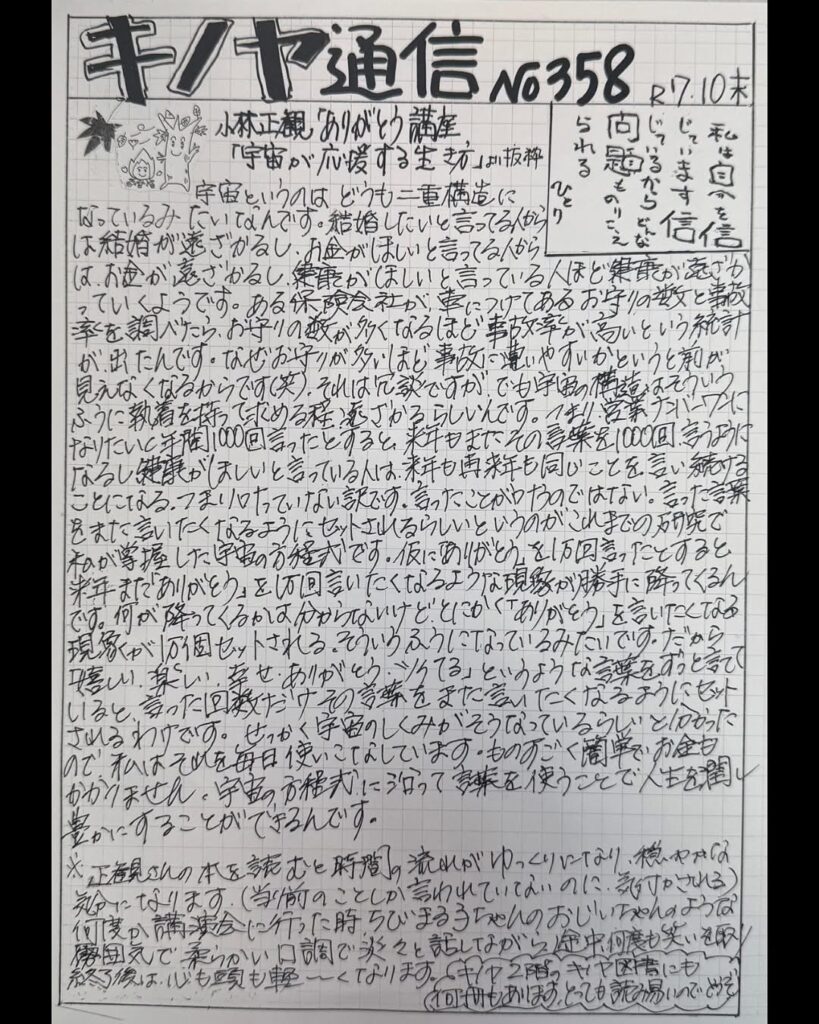 キノヤ通信 No358 R7.10末
小林正観「ありがとう講座
「宇宙が応援する生き方」より抜粋
私は自分を信
じています信
じているからどんな
問題ものりこえ
られる
ひとり
宇宙というのは どうも二重構造に
なっているみたいなんです。結婚したいと言ってる人から
は結婚が遠ざかるし、お金がほしいと言ってる人から
は、お金が遠ざかるし、健康がほしいと言っている人ほど健康が遠ざか
っていくようです。ある保険会社が、車につけてあるお守りの数と事故
率を調べたら、お守りの数が多くなるほど事故率が高いという統計
が出たんです。なぜお守りが多いほど事故に遭いやすいかというと前が
見えなくなるからです(笑)。それは冗談ですが、でも宇宙の構造はそういう
ふうに執着を持って求める程、遠ざかるらしいんです。つまり営業ナンバーワンに
なりたいと年間1000回言ったとすると、来年もまたその言葉を1000回、言うように
なるし健康がほしいと言っている人は、来年も再来年も同じことを言い続ける
ことになる。つまり叶っていない訳です。言ったことが叶うのではない。言った言葉
をまた言いたくなるようにセットされるらしいというのがこれまでの研究で
私が掌握した宇宙の方程式です。仮に「ありがとう」を1万回言ったとすると
来年また「ありがとう」を1万回言いたくなるような現象が勝手に降ってくるん
です。何が降ってくるかは分からないけど、とにかく「ありがとう」を言いたくなる
現象が1万個セットされる。そういうふうになっているみたいです。だから
「嬉しい、楽しい、幸せ、ありがとう、ツイてる」というような言葉をずっと言って
いると、言った回数だけその言葉をまた言いたくなるようにセット
されるわけです。せっかく宇宙のしくみがそうなっているらしいと分かった
ので私はそれを毎日使いこなしています。ものすごく簡単でお金も
かかりません。宇宙の方程式に沿って言葉を使うことで人生を潤し
豊かにすることができるんです。
※正観さんの本を読むと時間の流れがゆっくりになり、穏やかな
気分になります。(当り前のことしか言われていないのに、気付かされる)
何度か講演会に行った時、ちびまる子ちゃんのおじいちゃんのような
雰囲気で柔らかい口調で淡々と話しながら途中、何度も笑いを取り
終了後は、心も頭も軽〜くなります。キノヤ2階のキノヤ図書にも
何冊もあります。とっても読み易いのでどうぞ